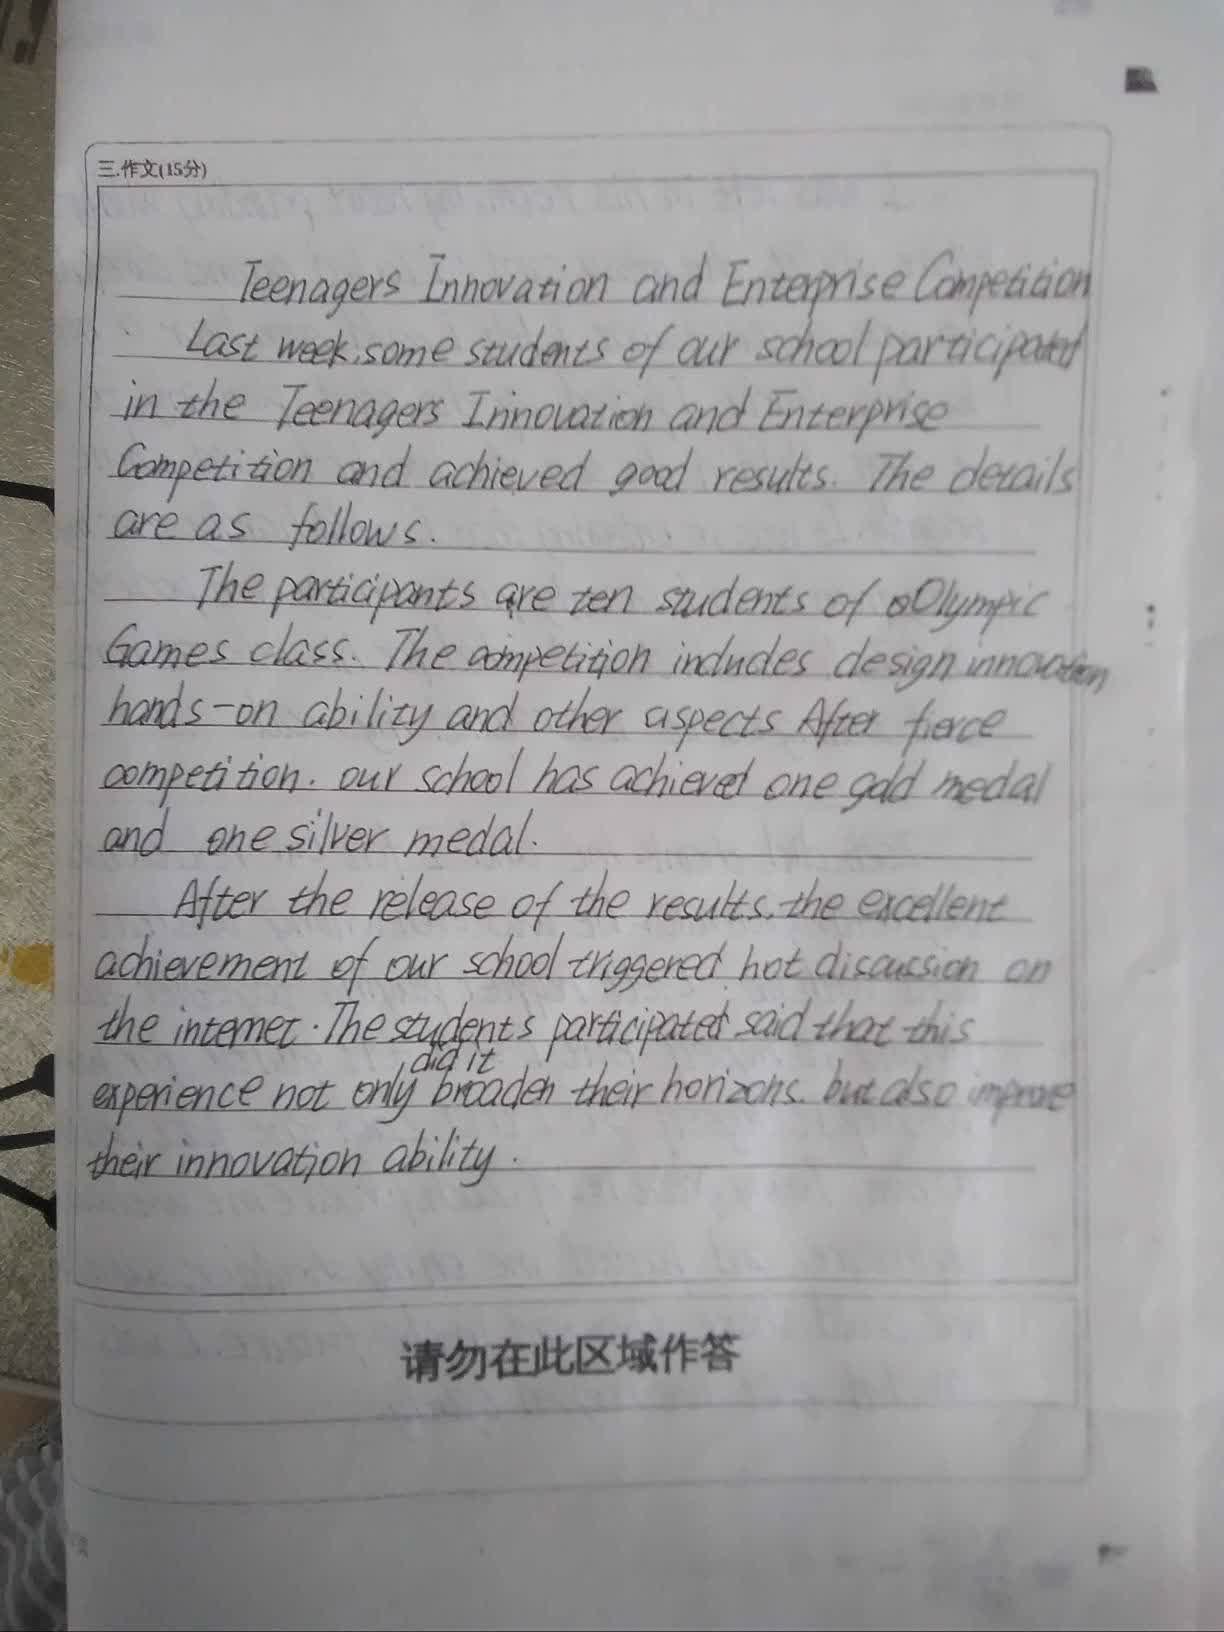 三.作文(15分)
Teenagers Innovation and Enterprise Competition
Last week, some students of our school participated
in the Teenagers Innovation and Enterprise
Competition and achieved good results. The details
are as follows.
The participants are ten students of Olympic
Games class. The competition includes design innovation
hands-on ability and other aspects After fierce
competition. our school has achieved one gold medal
and one silver medal.
After the release of the results, the excellent
achievement of our school triggered hot discussion on
the internet. The students participated said that this
did it
experience not only broaden their horizons. but also improve
their innovation ability.
请勿在此区域作答